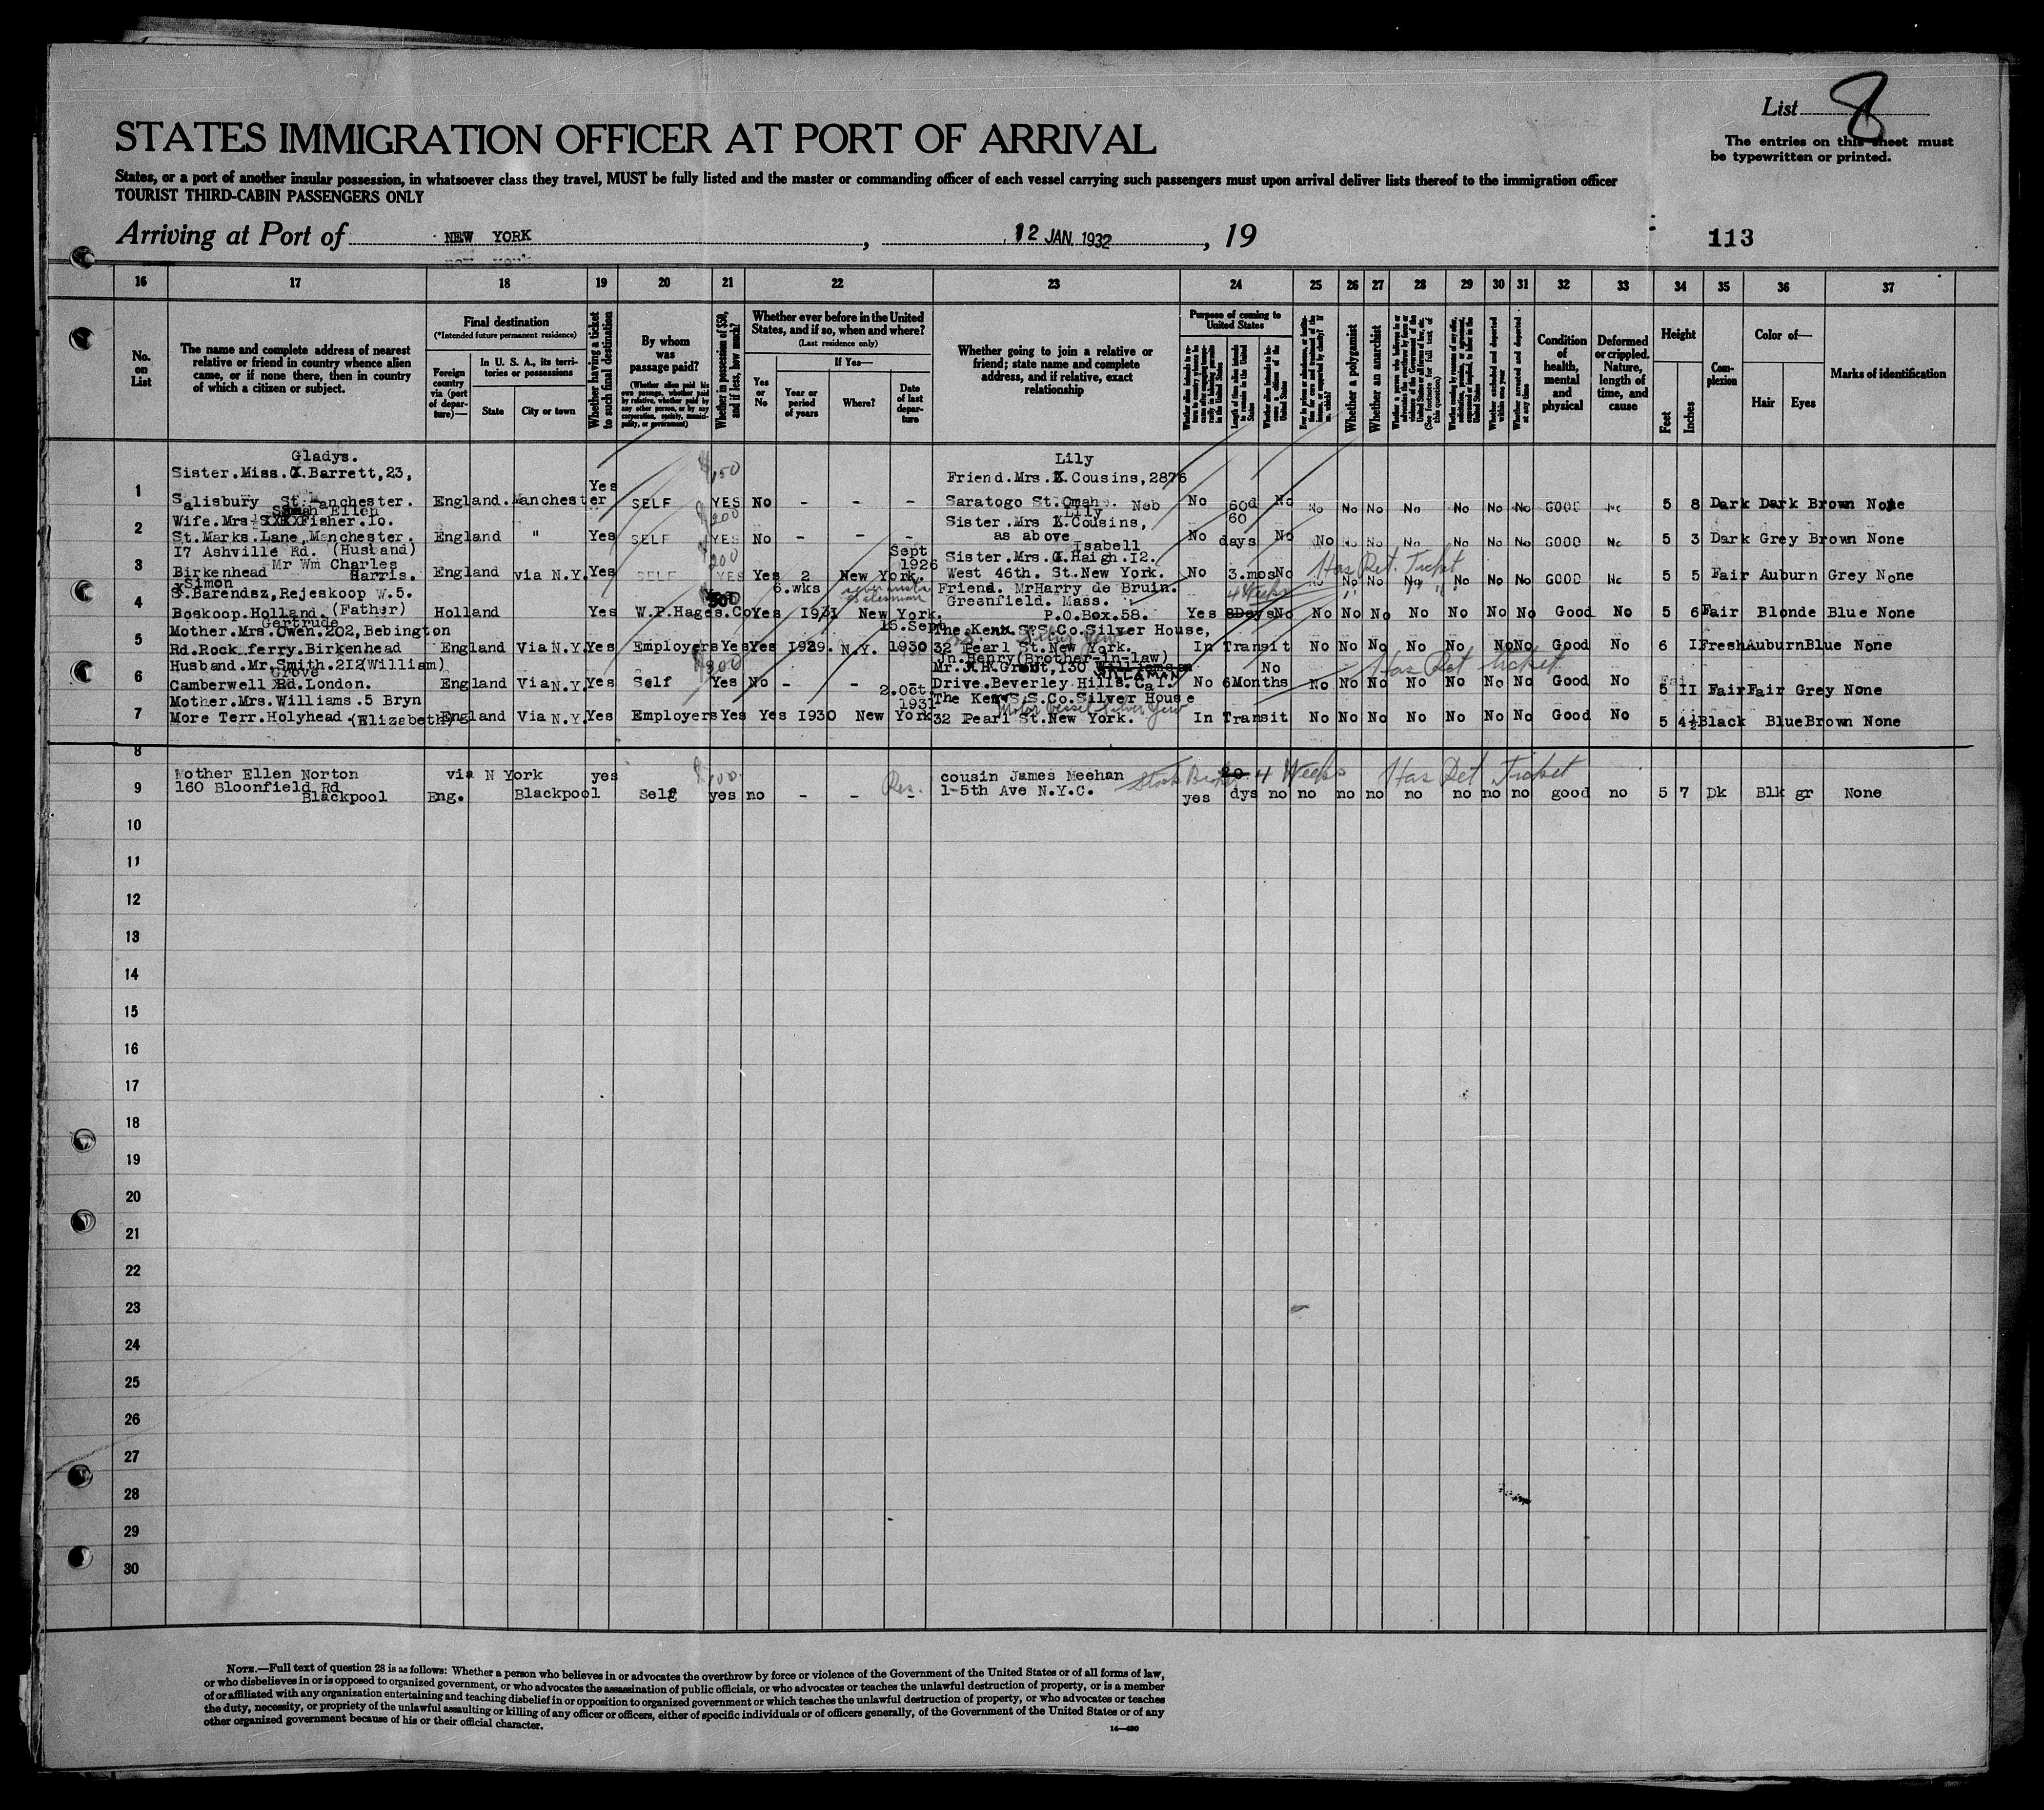 List 8
The entries on this sheet must
be typewritten or printed.
STATES IMMIGRATION OFFICER AT PORT OF ARRIVAL
States, or a port of another insular possession, in whatsoever class they travel, MUST be fully listed and the master or commanding officer of each vessel carrying such passengers must upon arrival deliver lists thereof to the immigration officer
TOURIST THIRD-CABIN PASSENGERS ONLY
Arriving at Port of NEW YORK , 12 JAN 1932 , 19
113
16 17 18 19 20 21 22 23 24 25 26 27 28 29 30 31 32 33 34 35 36 37
No. on List
The name and complete address of nearest
relative or friend in country whence alien
came, or if none there, then in country
of which a citizen or subject.
Final destination
(*Intended future permanent residence)
Foreign country via (port of departure)—
In U. S. A., its territories or possessions
State
City or town
Whether having a ticket to such final destination
By whom was passage paid?
(Whether alien paid his own passage, whether paid by relative, whether paid by any other person, or by any corporation, society, municipality, or government)
Whether in possession of $50, and if less, how much?
Whether ever before in the United
States, and if so, when and where?
(Last residence only)
Yes or No
If Yes—
Year or period of years
Where?
Date of last departure
Whether going to join a relative or
friend; state name and complete
address, and if relative, exact
relationship
Purpose of coming to United States
Length of time alien intends to remain in the United States
Whether alien intends to become a citizen of the United States
Whether a polygamist
Whether an anarchist
(See footnote for full text of this question)
Whether excluded and deported within one year
Whether arrested and deported at any time
Condition of health, mental and physical
Deformed or crippled. Nature, length of time, and cause
Height
Feet
Inches
Complexion
Color of—
Hair
Eyes
Marks of identification
Gladys. $150 Lily
1 Sister.Miss.X.Barrett,23, Yes Friend.Mrs.X.Cousins,2876
Salisbury St.Manchester. England. Manchester SELF YES No - - - Saratogo St.Omah. Neb No 60d No No No No No No No No GOOD No 5 8 Dark Dark Brown None
Sarah Ellen $200 Lily
2 Wife.Mrs Fisher.Io. Sister.Mrs X.Cousins, 60
St.Marks.Lane,Manchester. England " Yes SELF YES No - - - as above No days No No No No No No No No GOOD No 5 3 Dark Grey Brown None
3 I7 Ashville Rd. (Husband) $200 Sept 1926 Isabell Sister.Mrs.X.Haigh.I2. Has Ret. Ticket
Birkenhead Mr Wm Charles Harris. England via N.Y. Yes SELF YES Yes 2 New York. West 46th. St.New York. No 3.mos No No No No No No No No GOOD No 5 5 Fair Auburn Grey None
4 Simon 6.wks Friend. MrHarry de Bruin. 4 Weeks
.Barendez,Rejeskoop W.5. 500 Greenfield. Mass.
Boskoop.Holland. (Father) Holland Yes W.P.Hages.Co Yes I931 New York. P.O.Box.58. Yes 8Days No No No No No No No No Good No 5 6 Fair Blonde Blue None
5 Gertrude 16.Sept The Kerr.S.S.Co.Silver House,
Mother.Mrs.Owen.202,Bebington
Rd.Rock ferry.Birkenhead England Via N.Y. Yes Employers Yes Yes I929. N.Y. 1930 32 Pearl St.New York. In Transit No No No No No No No Good No 6 I Fresh Auburn Blue None
6 Husband.Mr.Smith.2I2(William) $200 Jn.Henry(Brother-in-law) Has Ret ticket
Grove Mr.J.H.Grout,I30
Camberwell Rd.London. England Via N.Y. Yes Self Yes No - - - Drive.Beverley Hills.Cal. No 6Months No No No No No No No No Good No 5 II Fair Fair Grey None
7 Mother.Mrs.Williams.5 Bryn 2.Oct. 1931 The Kerr S.S.Co.Silver House
Motor Vessel Silver Yew
More Terr.Holyhead.(Elizabeth) England Via N.Y. Yes Employers Yes Yes I930 New York 32 Pearl St.New York. In Transit No No No No No No No Good No 5 4½ Black Blue Brown None
8
9 Mother Ellen Norton via N York yes $100 cousin James Meehan Stock Broker 20 4 Weeks Has Ret Ticket
160 Bloonfield Rd Blackpool Eng. Blackpool Self yes no - - - Res. 1-5th Ave N.Y.C. yes dys no no no no no no no no good no 5 7 Dk Blk gr None
10
11
12
13
14
15
16
17
18
19
20
21
22
23
24
25
26
27
28
29
30
NOTE.—Full text of question 28 is as follows: Whether a person who believes in or advocates the overthrow by force or violence of the Government of the United States or of all forms of law,
or who disbelieves in or is opposed to organized government, or who advocates the assassination of public officials, or who advocates or teaches the unlawful destruction of property, or is a member
of or affiliated with any organization entertaining and teaching disbelief in or opposition to organized government or which teaches the unlawful destruction of property, or who advocates or teaches
the duty, necessity, or propriety of the unlawful assaulting or killing of any officer or officers, either of specific individuals or of officers generally, of the Government of the United States or of any
other organized government because of his or their official character.
14—420